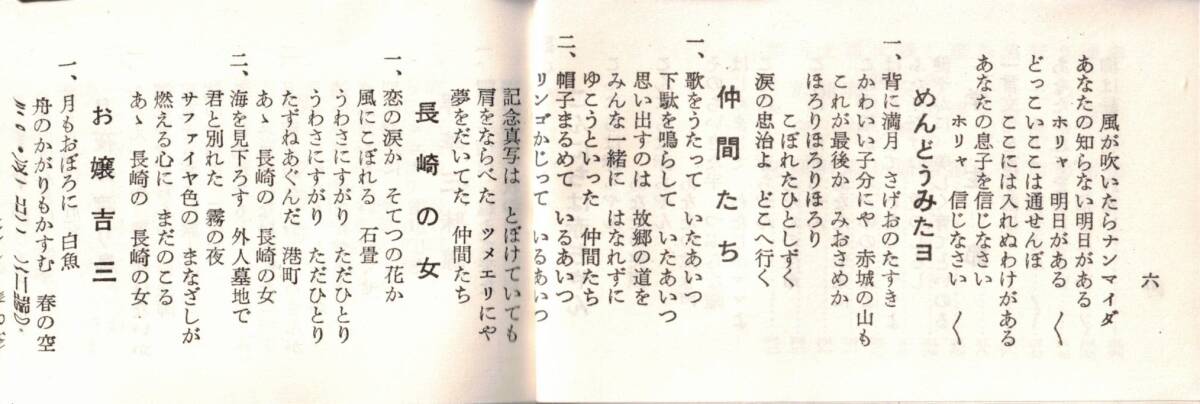 六
風が吹いたらナンマイダ
あなたの知らない明日がある
ホリャ 明日がある 〱
どっこいここは通せんぼ
ここには入れぬわけがある
あなたの息子を信じなさい
ホリャ 信じなさい 〱
めんどうみたヨ
一、背に満月 さげおのたすき
かわいい子分にや 赤城の山も
これが最後か みおさめか
ほろりほろりほろり
こぼれたひとしずく
涙の忠治よ どこへ行く
仲間たち
一、歌をうたって いたあいつ
下駄を鳴らして いたあいつ
思い出すのは 故郷の道を
みんな一緒に はなれずに
ゆこうといった 仲間たち
二、帽子まるめて いるあいつ
リンゴかじって いるあいつ
記念真写は とぼけていても
肩をならべた ツメエリにや
夢をだいてた 仲間たち
長崎の女
一、恋の涙か そてつの花か
風にこぼれる 石畳
うわさにすがり ただひとり
うわさにすがり ただひとり
たずねあぐんだ 港町
あゝ 長崎の 長崎の女
二、海を見下ろす 外人墓地で
君と別れた 霧の夜
サファイヤ色の まなざしが
燃える心に まだのこる
あゝ 長崎の 長崎の女
お嬢吉三
一、月もおぼろに 白魚
舟のかがりもかすむ 春の空